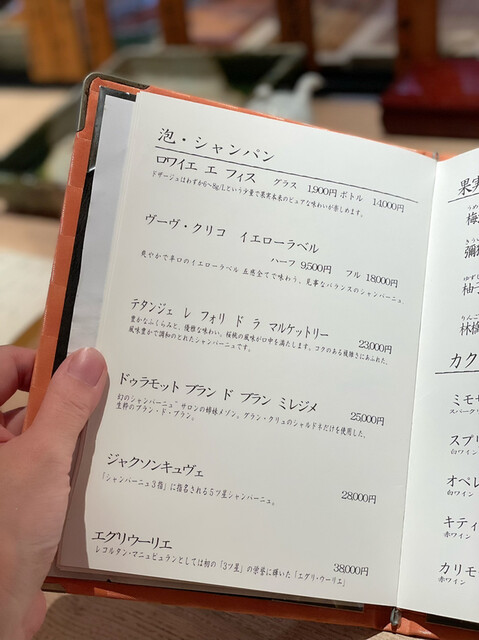 泡・シャンパン
ロワイエ エ フィス グラス 1,900円 ボトル 14,000円
ドザージュはわずか6〜8g/Lという少量で果実本来のピュアな味わいが楽しめます。
ヴーヴ・クリコ イエローラベル
ハーフ 9,500円 フル 18,000円
爽やかで辛口のイエローラベル 五感全てで味わう、見事なバランスのシャンパーニュ。
テタンジェ レ フォリ ド ラ マルケットリー
23,000円
豊かなふくらみと、優雅な味わい。桜桃の風味が口中を満たします。コクのある繊細さにあふれた、
風味豊かで調和のとれたシャンパーニュです。
ドゥラモット ブラン ド ブラン ミレジメ
25,000円
幻のシャンパーニュ"サロンの姉妹メゾン。グラン・クリュのシャルドネだけを使用した、
生粋のブラン・ド・ブラン。
ジャクソンキュヴェ
28,000円
「シャンパーニュ3指」に指名される5ツ星シャンパーニュ。
エグリウーリエ
38,000円
レコルタン・マニュピュランとしては初の「3ツ星」の栄誉に輝いた「エグリ・ウーリエ」
果実
うめ
梅
ゆず
柚子
りんご
林檎
カク
ミモザ
スパーク
スプリ
白ワイン
オペレ
白ワイン
キティ
赤ワイン
カリモ
赤ワイン